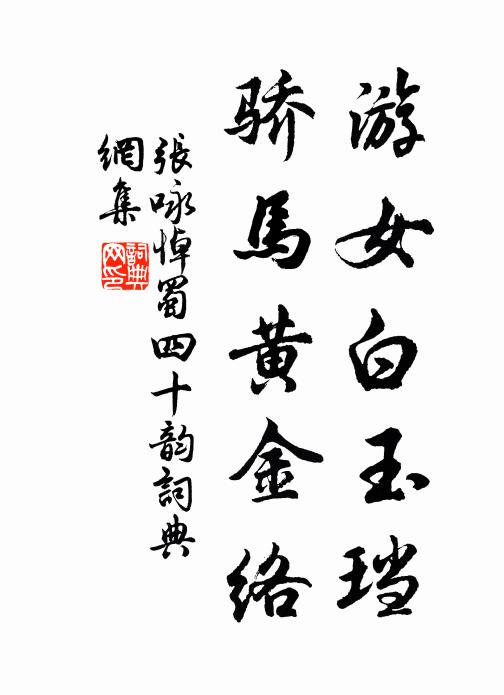 游女白玉珰
骄馬黄金络
張咏悼蜀四十韵詞典
網集
詞典网印